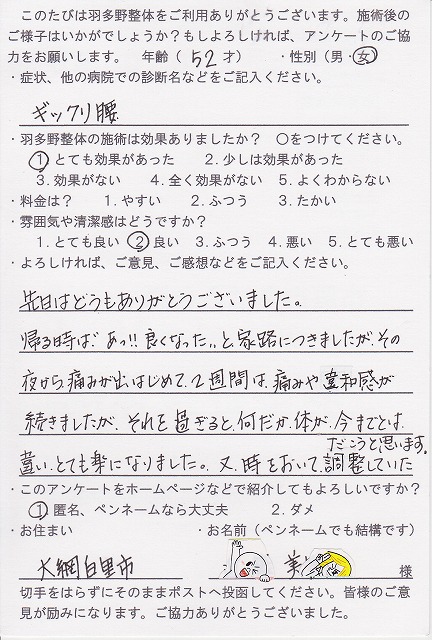 このたびは羽多野整体をご利用ありがとうございます。施術後の
ご様子はいかがでしょうか？もしよろしければ、アンケートのご協
力をお願いします。　年齢（ 52 才）　・性別（男・女）
・症状、他の病院での診断名などをご記入ください。
ギックリ腰
・羽多野整体の施術は効果ありましたか？　〇をつけてください。
1. とても効果があった　2. 少しは効果があった
3. 効果がない　4. 全く効果がない　5. よくわからない
・料金は？　1. やすい　2. ふつう　3. たかい
・雰囲気や清潔感はどうですか？
1. とても良い　2 良い　3. ふつう　4. 悪い　5. とても悪い
・よろしければ、ご意見、ご感想などをご記入ください。
先日はどうもありがとうございました。
帰る時は“あっ!!良くなった〟と家路につきましたが、その
夜から痛みが出はじめて、2週間は、痛みや違和感が
続きましたが、それを過ぎると、何だか、体が、今までとは、
違い、とても楽になりました。又、時をおいて、調整していた
だこうと思います。
・このアンケートをホームページなどで紹介してもよろしいですか？
1. 匿名、ペンネームなら大丈夫　2. ダメ
・お住まい　・お名前（ペンネームでも結構です）
大網白里市　美　様
切手をはらずにそのままポストへ投函してください。皆様のご意
見が励みになります。ご協力ありがとうございました。